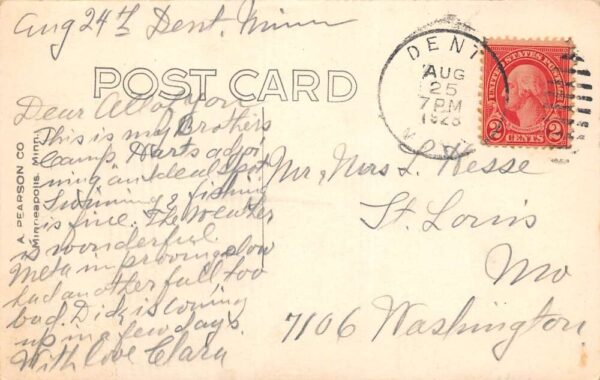 Aug 24th Dent, Minn
POST CARD
Dear All of You
This is my Brothers
Camp, Harts adjoi
ning an ideal spot
Swimming & fishing
is fine. The Weather
is wonderful.
Meta improving slow
had another fall too
bad. Dick is coming
up in a few days.
With love Clara
A. PEARSON CO
Minneapolis, Minn.
DENT
AUG
25
7 PM
1928
UNITED STATES POSTAGE
2 2
CENTS
Mr, Mrs L. Hesse
St. Louis
Mo
7106 Washington